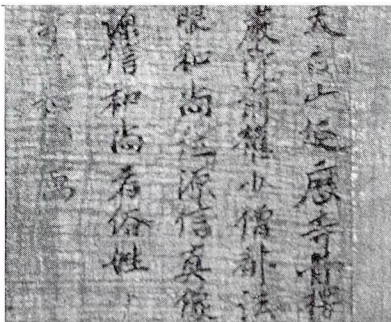 天台山延暦寺首楞
嚴院前權少僧都法
眼和尚位源信真
源信和尚者俗姓